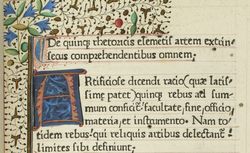 De quinqȝ rhetoricis elemētis artem extrin
secus comprehendentibus omnem.
ARtificiose dicendi racio (quæ latis
sime patet) quinqȝ rebus ad sum
mum conficit᷑: facultate, fine, officio,
materia, et instrumento. Nam to
tidem rebus: qui reliquis artibus delectant᷑
limites sibi definiunt.